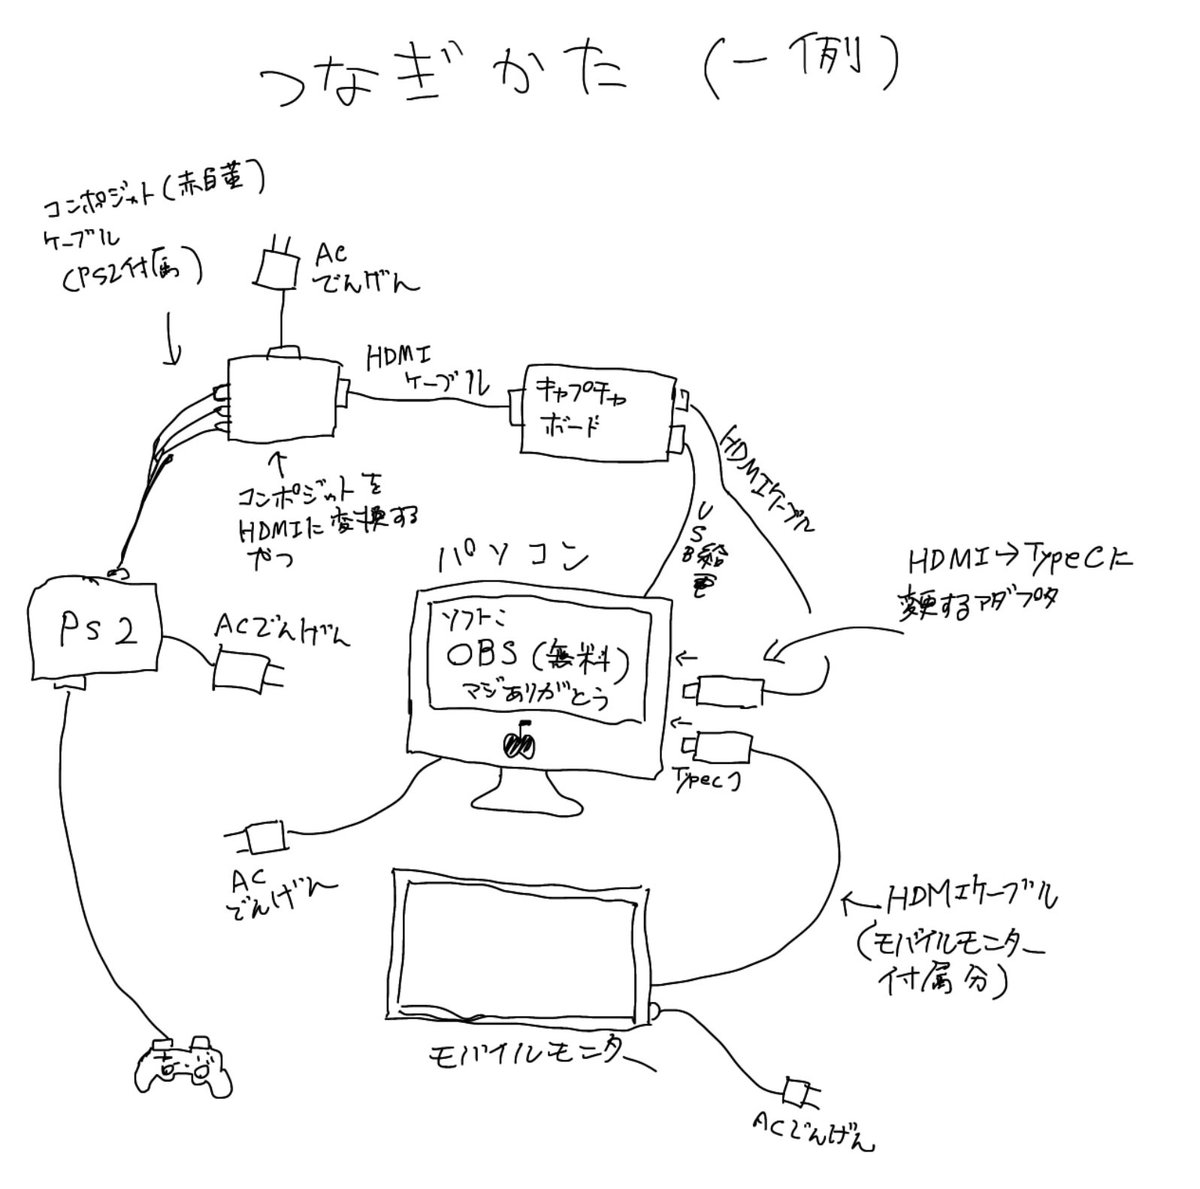 つなぎかた (一例)
コンポジット(赤白黄)
ケーブル
(PS2付属)
AC
でんげん
HDMI
ケーブル
キャプチャ
ボード
HDMIケーブル
USB給電
コンポジットを
HDMIに変換する
やつ
パソコン
HDMI→TypeCに
変更するアダプタ
PS2
ACでんげん
ソフト:
OBS (無料)
マジありがとう
TypeC
AC
でんげん
HDMIケーブル
(モバイルモニター
付属分)
モバイルモニター
ACでんげん